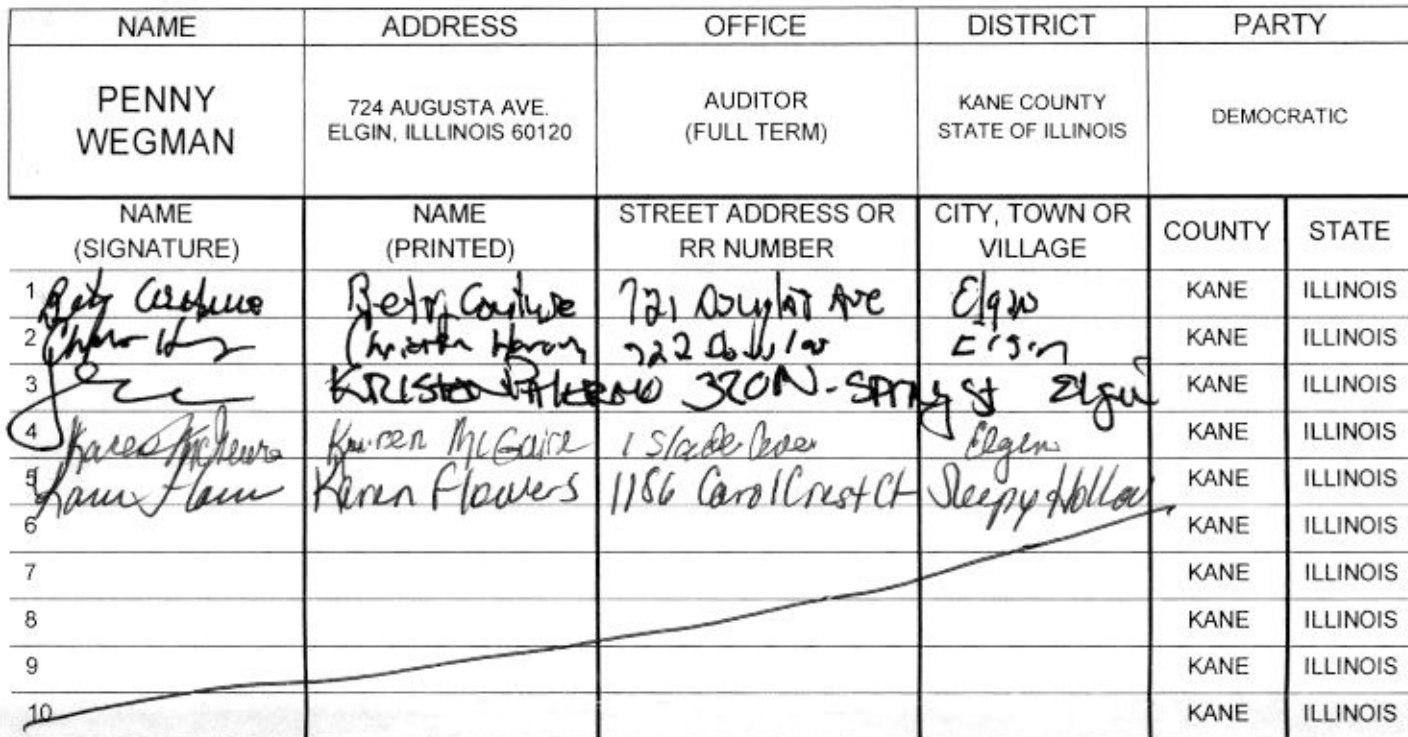 NAME ADDRESS OFFICE DISTRICT PARTY
PENNY WEGMAN
724 AUGUSTA AVE.
ELGIN, ILLLINOIS 60120
AUDITOR
(FULL TERM)
KANE COUNTY
STATE OF ILLINOIS
DEMOCRATIC
NAME (SIGNATURE) NAME (PRINTED) STREET ADDRESS OR RR NUMBER CITY, TOWN OR VILLAGE COUNTY STATE
1 Betty 721 Douglas Ave Elgin KANE ILLINOIS
2 722 Elgin KANE ILLINOIS
3 KRISTEN PALERMO 320 N. Spring St Elgin KANE ILLINOIS
4 McGuire 1 Slade Elgin KANE ILLINOIS
5 Karen Flowers 1186 Carol Crest Ct Sleepy Hollow KANE ILLINOIS
6 KANE ILLINOIS
7 KANE ILLINOIS
8 KANE ILLINOIS
9 KANE ILLINOIS
10 KANE ILLINOIS